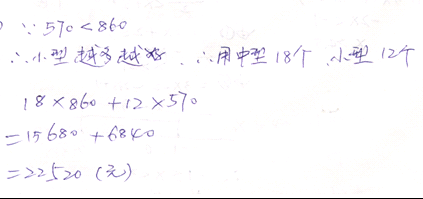 ) ∵570<860
∴小型越多越好.∴用中型18个,小型12个
18×860+12×570
=15680+6840
=22520(元)